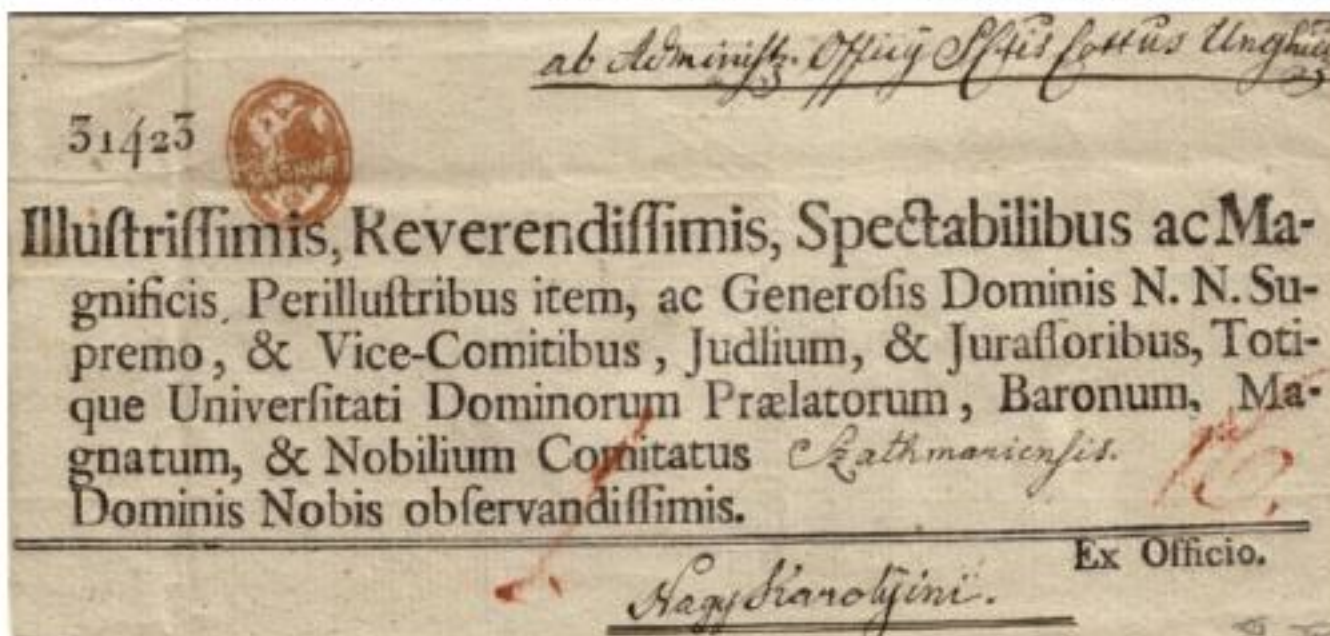 ab Administr. Officy Sstis Cottus Unghu
31423
Illuſtriſſimis, Reverendiſſimis, Spectabilibus ac Ma-
gnificis, Perilluſtribus item, ac Generoſis Dominis N. N. Su-
premo, & Vice-Comitibus, Judlium, & Juraſſoribus, Toti-
que Univerſitati Dominorum Prælatorum, Baronum, Ma-
gnatum, & Nobilium Comitatus Szathmariensis.
Dominis Nobis obſervandiſſimis.
Ex Officio.
Nagy Karolyini.